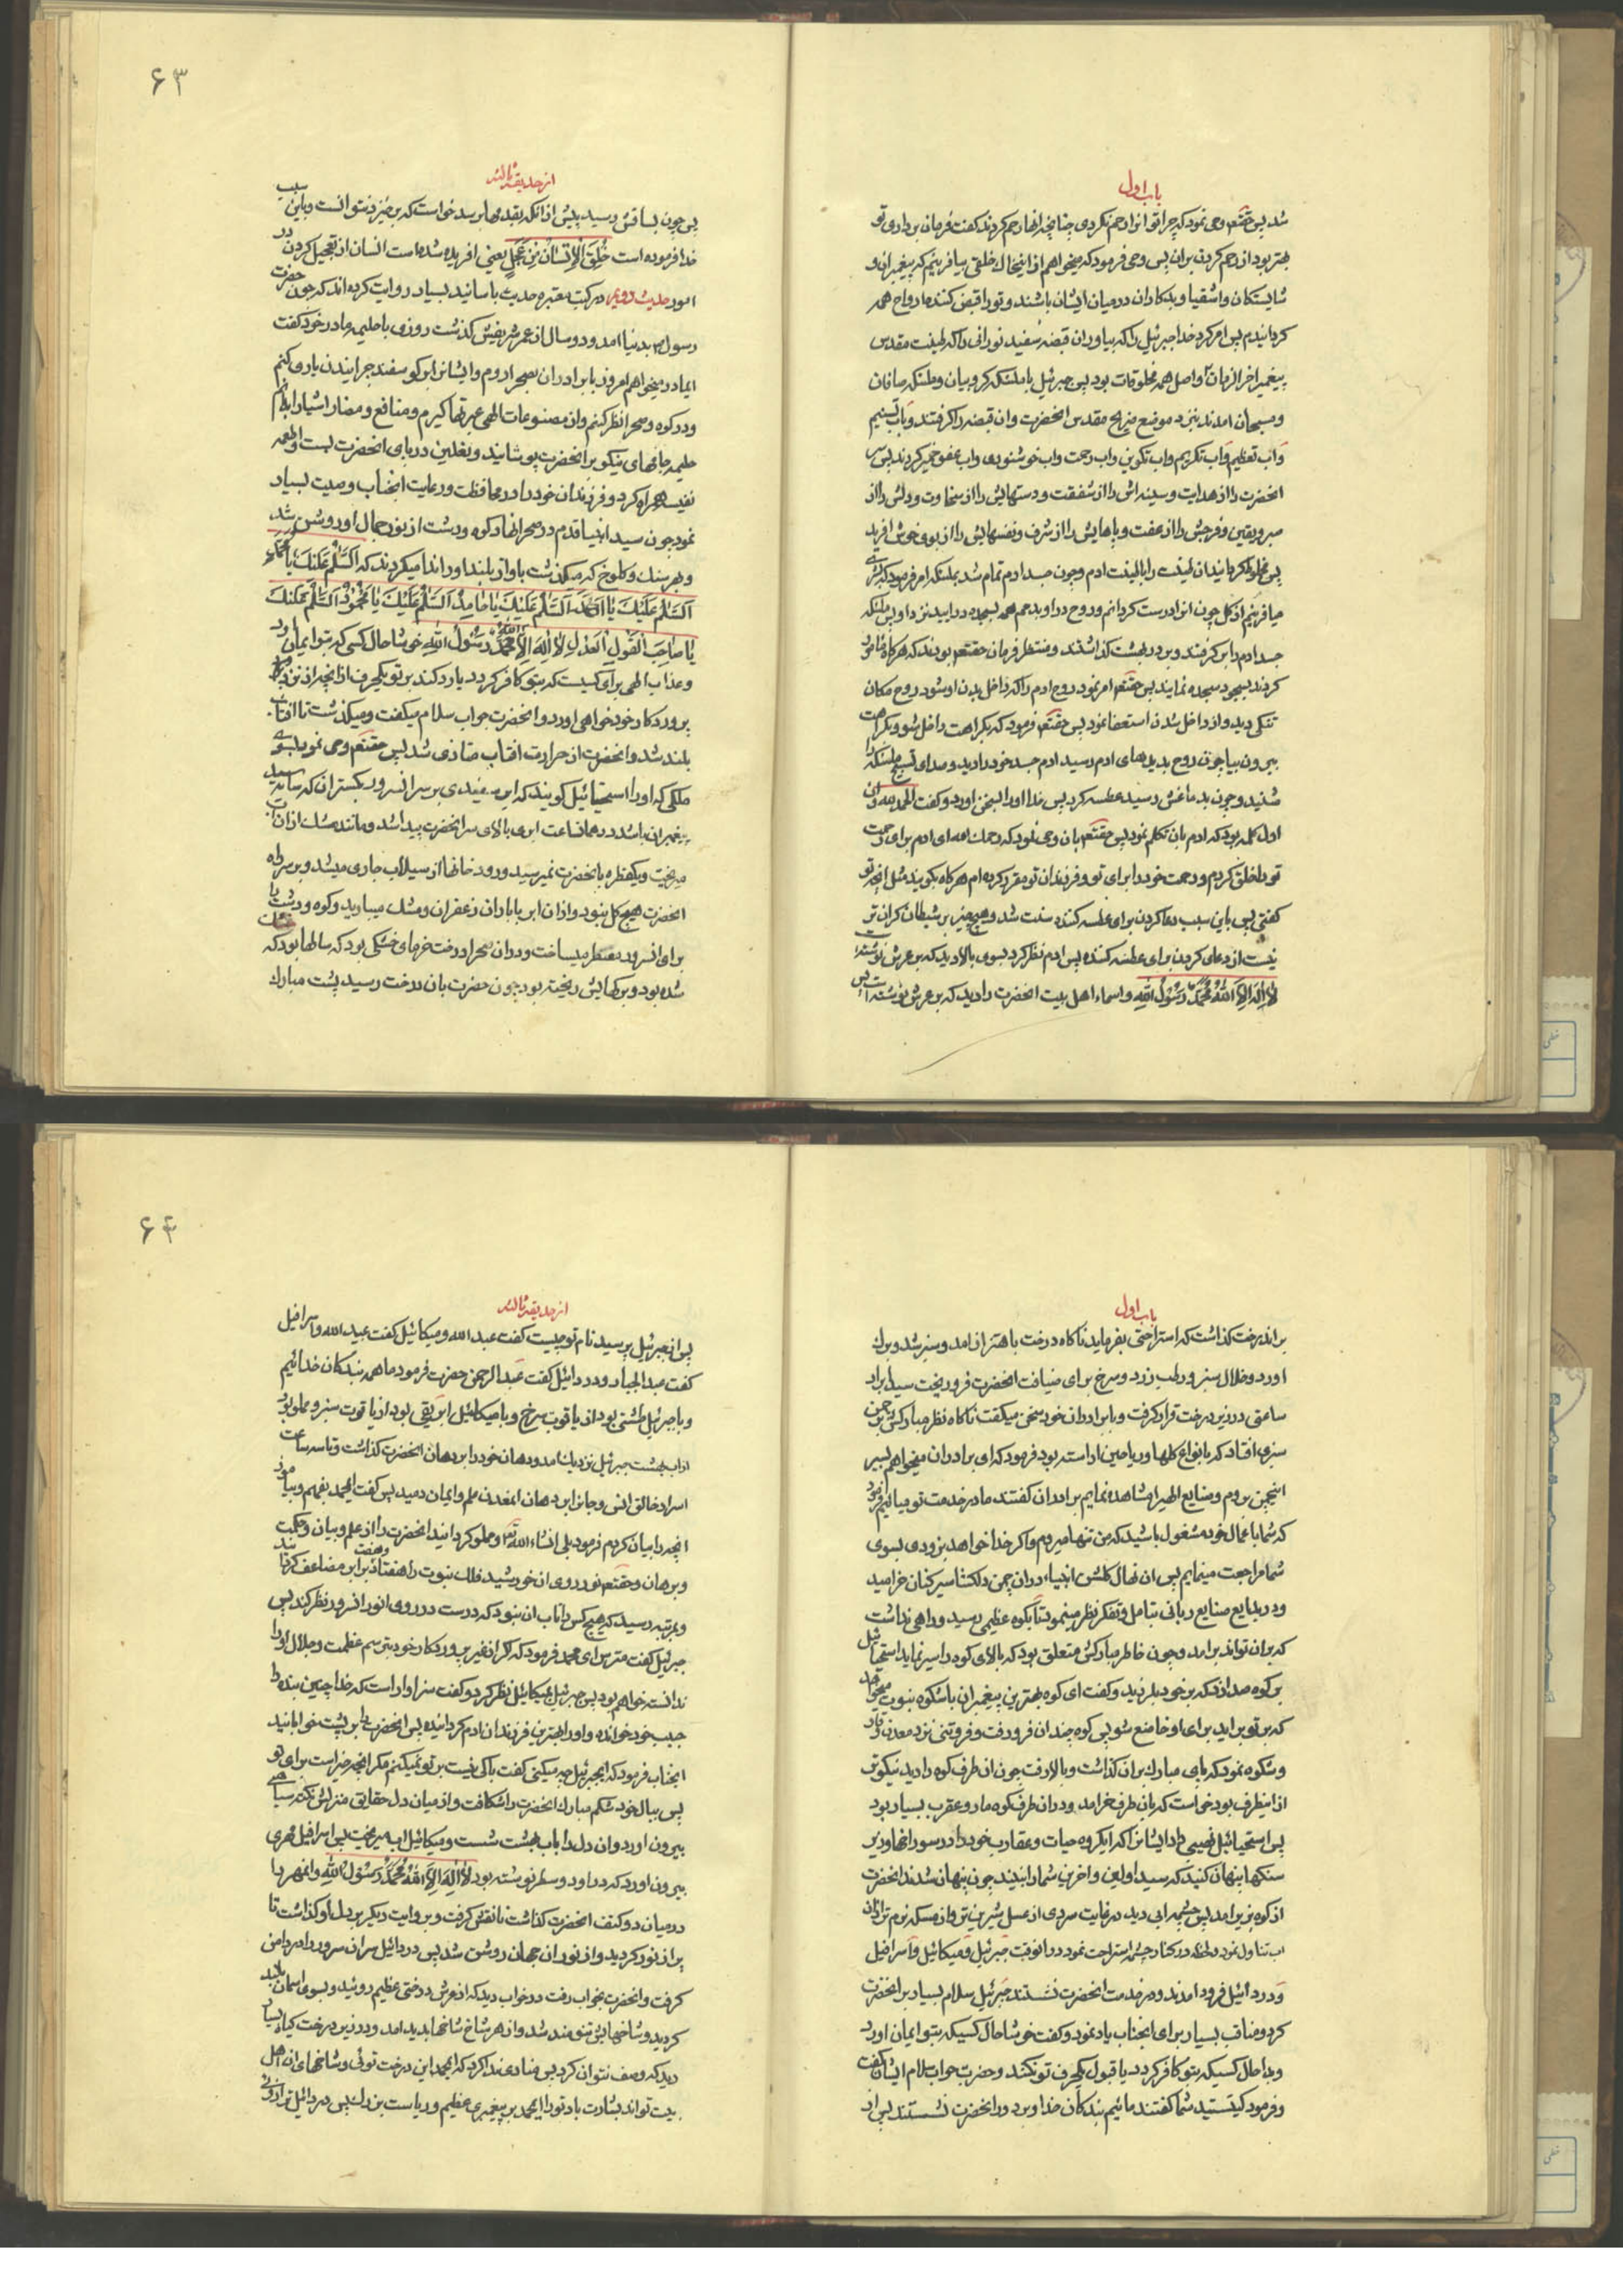 باب اول
شد پس حقتعم وحی نمود که چرا تو انرا رحم نکردی چنانچه انها رحم کردند کفت فرمان برداری تو
بهتر بود از رحم کردن بران پس وحی فرمود که میخواهم از این خاک خلقی بیافرینم که پیغمبران و
شایستکان و اشقیا و بدکاران در میان ایشان باشند و تو را قبض کننده ارواح همه
کردانیدم پس امر کرد خدا جبرئیل را که بیاور ان قبضه سفید نورانی را که طینت مقدس
پیغمبر اخر الزمان و اصل همه مخلوقات بود پس جبرئیل با ملئکه کروبیان و ملئکه صافان
و مسبحان امدند بنزد موضع ضریح مقدس انحضرت وان قبضه را کرفتند و باب تسنیم
و اب تعظیم و اب تکریم و اب تکوین و اب رحمت و اب خوشنودی و اب عفو خمیر کردند پس سر
انحضرت را از هدایت و سینه اش را از شفقت و دستهایش را از سخاوت و دلش را از
صبر و یقین و فرجش را از عفت و پاهایش را از شرف و نفسهایش را از بوی خوش افرید
پس مخلوط کردانید ان طینت را با طینت ادم و چون جسد ادم تمام شد بملئکه امر فرمود که بشری
میافرینم از کل چون انرا درست کردانم و روح در او بدمم همه بسجده درایید نزد او پس ملئکه
جسد ادم را برکرفتند و بر در بهشت کذاشتند و منتظر فرمان حقتعم بودند که هرکاه مامور
کردند بسجود سجده نمایند پس حقتعم امر نمود روح ادم را که داخل بدن او شود روح مکان
تنکی دید و از داخل شدن استعفا نمود پس حقتعم فرمود که بکراهت داخل شو و بکراهت
بیرون بیا چون روح بدیدهای ادم رسید ادم جسد خود را دید و صدای تسبیح ملئکه را
شنید و چون بدماغش رسید عطسه کرد پس خدا او را بسخن اورد و کفت الحمد لله و ان
اول کلمه بود که ادم بان تکلم نمود پس حقتعم بان وحی نمود که رحمك الله ای ادم برای رحمت
تو را خلق کردم و رحمت خود را برای تو و فرزندان تو مقرر کرده ام هرکاه بکویند مثل انچه تو
کفتی پس باین سبب دعا کردن برای عطسه کننده سنت شد و هیچ چیز بر شیطان کران تر
نیست از دعای کردن برای عطسه کننده پس ادم نظر کرد بسوی بالا دید که بر عرش نوشته
لا اله الا الله محمد رسول الله و اسماء اهل بیت انحضرت را دید که بر عرش نوشته است پس
۶۳
از حدیقه ثالثه
پس چون بساقش رسید پیش از انکه بقدمها برسد خواست که برخیزد نتوانست و باین سبب
خدا فرموده است خُلِقَ الْاِنْسَانُ مِنْ عَجَلٍ یعنی افریده شده است انسان از تعجیل کردن در
امور حدیث دویم در کتب معتبره حدیث باسانید بسیار روایت کرده اند که چون حضرت
رسول بدنیا امد و دو سال از عمر شریفش کذشت روزی با حلیمه مادر خود کفت
ایمادر میخواهم امروز با برادران بصحرا روم و ایشانرا بر کوسفند چرانیدن یاری کنم
و در کوه و صحرا نظر کنم و از مصنوعات الهی عبرتها کیرم و منافع و مضار اشیا را بدانم
حلیمه جامهای نیکو بر انحضرت پوشانید و نعلین در پای انحضرت بست و اطعمه
نفیسه همراه کرد و فرزندان خود را در محافظت و رعایت انجناب وصیت بسیار
نمود چون سید انبیا قدم در صحرا نهاد کوه و دشت از نور جمال او روشن شد
و بهر سنك و کلوخ که میکذشت باواز بلند او را ندا میکردند که اَلسَّلٰمُ عَلَیْكَ یا مُحَمَّدُ
اَلسَّلٰمُ عَلَیْكَ یا اَحْمَدُ اَلسَّلٰمُ عَلَیْكَ یا حٰامِدُ اَلسَّلٰمُ عَلَیْكَ یا مَحْمُودُ اَلسَّلٰمُ عَلَیْكَ
یا صٰاحِبَ الْقَوْلِ الْعَدْلِ لا اِلٰهَ اِلَّا اللهُ مُحَمَّدٌ رَسُولُ اللهِ خوشا حال کسی که بتو ایمان اورد
و عذاب الهی برای کسیست که بتو کافر کردد یا رد کند بر تو یکحرف از انچه از نزد
پروردکار خود خواهی اورد و انحضرت جواب سلام میکفت و میکذشت تا افتاب
بلند شد و انحضرت از حرارت افتاب متاذی شد پس حقتعم وحی نمود بسوی
ملکی که او را استحیائیل کویند که ابر سفیدی بر سر انسرور بکستران که سایه سید
پیغمبران باشد در همان ساعت ابری بالای سر انحضرت پیدا شد و مانند مشك از ان اب
میریخت و یکقطره بانحضرت نمیرسید و رود خانها از سیلاب جاری میشد و بر سر راه
انحضرت هیچ کل نبود و از ان ابر باباران زعفران و مشك میبارید و کوه و دشت را
برای انسرور معطر میساخت و در ان صحرا درخت خرمای خشکی بود که سالها بود که
شده بود و برکهایش ریخته بود چون حضرت بان درخت رسید پشت مبارك
باب اول
بر اندرخت کذاشت که استراحتی بفرماید ناکاه درخت باهتزاز امد و سبز شد و برك
اورد و خلال سبز و رطب زرد و سرخ برای ضیافت انحضرت فرو ریخت سید ابرار
ساعتی در زیر درخت قرار کرفت و با برادران خود سخن میکفت ناکاه نظر مبارکش بر چمن
سبزی افتاد که بانواع کلها و ریاحین اراسته بود فرمود که ای برادران میخواهم بسیر
اینچمن بروم و صنایع الهیرا مشاهده نمایم برادران کفتند ما در خدمت تو میائیم فرمود
که شما باعمال خود مشغول باشید که من تنها میروم و اکر خدا خواهد بزودی بسوی
شما مراجعت مینمایم پس ان نهال کلشن انبیاء در ان چمن دلکشا سیر کنان خرامید
و در بدایع صنایع ربانی بتامل و تفکر نظر مینمود تا بکوه عظیمی رسید و راهی نداشت
که بران تواند برامد و چون خاطر مبارکش متعلق بود که بالای کوه را سیر نماید استحیائیل
بر کوه صدا زد که بر خود بلرزید و کفت ای کوه بهترین پیغمبران با شکوه نبوت میخواهد
که بر تو براید برای او خاضع شو پس کوه چندان فرو رفت و فروتنی نزد معدن وقار
و شکوه نمود که پای مبارك بر ان کذاشت و بالا رفت چون ان طرف کوه را دید نیکوتر
از اینطرف بود خواست که بان طرف خرامد و در ان طرف کوه مار و عقرب بسیار بود
پس استحیائیل نهیبی داد ایشانرا که ایکروه حیات و عقارب خود را در سوراخها و زیر
سنکها پنهان کنید که سید اولین و اخرین شما را نبیند چون پنهان شدند انحضرت
از کوه بزیر امد پس چشمه ابی دید در غایت سردی از عسل شیرین تر و از مسکه نرم تر از ان
اب تناول نمود و لحظه در کنار چشمه استراحت نمود در انوقت جبرئیل و میکائیل و اسرافیل
و دردائیل فرود امدند و در خدمت انحضرت نشستند جبرئیل سلام بسیار بر انحضرت
کرد و مناقب بسیار برای انجناب یاد نمود و کفت خوشا حال کسیکه بتو ایمان اورد
و بدا حال کسیکه بتو کافر کردد یا قبول یکحرف تو نکند و حضرت جواب سلام ایشان کفت
و فرمود کیستید شما کفتند ما ئیم بندکان خدا و بر دور انحضرت نشستند پس از
۶۴
از حدیقه ثالثه
پس از جبرئیل پرسید نام تو چیست کفت عبد الله و میکائیل کفت عبید الله و اسرافیل
کفت عبد الجبار و دردائیل کفت عبد الرحمن حضرت فرمود ما همه بندکان خدائیم
و با جبرئیل طشتی بود از یاقوت سرخ و با میکائیل ابریقی بود از یاقوت سبز و مملو بود
از اب بهشت جبرئیل نزدیك امد و دهان خود را بر دهان انحضرت کذاشت و تا سه ساعت
اسرار خالق انس و جان را بر دهان انمعدن علم و ایمان دمید پس کفت ایمحمد بفهم و بیاموز
انچه را بیان کردم فرمود بلی انشاء الله تع و مملو کردانید انحضرت را از علم و بیان و حکمت
و برهان و حقتعم نور روی ان خورشید فلك نبوت را هفتاد و هفت برابر مضاعف کردانید
و بمرتبه رسید که هیچ کس را تاب ان نبود که درست در روی انور انسرور نظر کند پس
جبرئیل کفت مترس ای محمد فرمود که اکر از غیر پروردکار خود بترسم عظمت و جلال او را
ندانسته خواهم بود پس جبرئیل بمیکائیل نظر کرد و کفت سزاوار است که خدا چنین بنده را
حبیب خود خوانده و او را بهترین فرزندان ادم کردانیده پس انحضرت را بر پشت خوابانید
انجناب فرمود که ایجبرئیل چه میکنی کفت باکی نیست بر تو نمیکنم مکر انچه خیر است برای تو
پس ببال خود شکم مبارك انحضرت را شکافت و از میان دل حقایق منزلش نکته سیاهی
بیرون اورد و ان دل را باب بهشت شست و میکائیل اب میریخت پس اسرافیل مهری
بیرون اورد که در او دو سطر نوشته بود لا اِلٰهَ اِلَّا اللهُ مُحَمَّدٌ رَسُولُ اللهِ و انمهر را
در میان دو کتف انحضرت کذاشت تا نقش کرفت و بروایت دیکر بر دل او کذاشت تا
پر از نور کردید و از نور ان جهان روشن شد پس دردائیل سر ان سرور را در دامن
کرفت و انحضرت بخواب رفت در خواب دید که از سرش درختی عظیم روئید و بسوی اسمان بلند
کردید و شاخهایش تنومند شد و از هر شاخ شاخها پدید امد و در زیر درخت کیاه بسیار
دید که وصف نتوان کرد پس منادی ندا کرد که ایمحمد این درخت توئی و شاخهای ان اهل
بیت تواند بشارت باد تو را ایمحمد بر پیغمبری عظیم و ریاست بزرك پس دردائیل ترازوئی